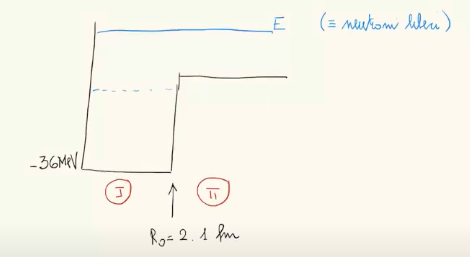 E (≡ neutron liber)
-36MeV
I II
R₀=2.1 fm